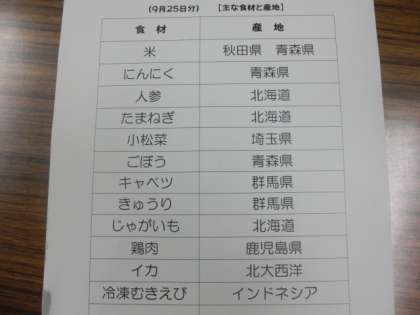 (9月25日分) 【主な食材と産地】
食材 産地
米 秋田県 青森県
にんにく 青森県
人参 北海道
たまねぎ 北海道
小松菜 埼玉県
ごぼう 青森県
キャベツ 群馬県
きゅうり 群馬県
じゃがいも 北海道
鶏肉 鹿児島県
イカ 北大西洋
冷凍むきえび インドネシア